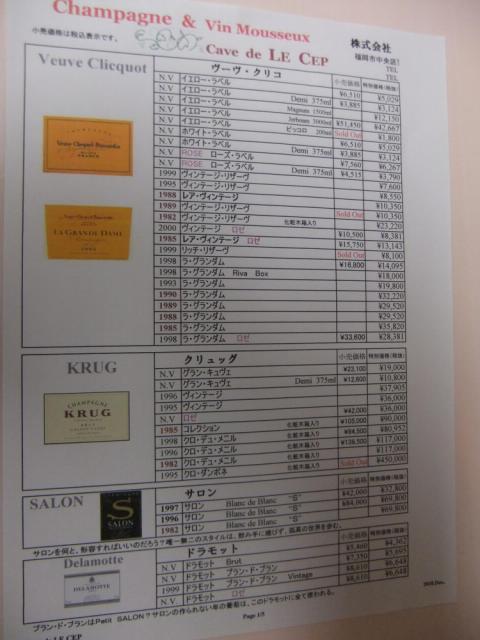 Champagne & Vin Mousseux
小売価格は税込表示です。
Cave de LE CEP
株式会社
福岡市中央区
TEL
TEL
Veuve Clicquot
ヴーヴ・クリコ
小売価格 特別価格(税抜)
N.V イエロー・ラベル ¥6,510 ¥5,029
N.V イエロー・ラベル Demi 375ml ¥3,885 ¥3,124
N.V イエロー・ラベル Magnum 1500ml ¥12,150
N.V イエロー・ラベル Jeroboam 3000ml ¥51,450 ¥42,667
N.V イエロー・ラベル ピッコロ 200ml Sold Out ¥1,800
N.V ホワイト・ラベル ¥6,510 ¥5,029
N.V ホワイト・ラベル Demi 375ml ¥3,885 ¥3,124
N.V ROSE ローズ・ラベル ¥7,560 ¥6,267
N.V ROSE ローズ・ラベル Demi 375ml ¥4,515 ¥3,790
1999 ヴィンテージ・リザーヴ ¥7,600
1995 ヴィンテージ・リザーヴ ¥8,550
1988 レア・ヴィンテージ ¥10,350
1989 ヴィンテージ・リザーヴ Sold Out ¥10,350
1982 ヴィンテージ・リザーヴ 化粧木箱入り ¥23,220
2000 ヴィンテージ ロゼ ¥10,500 ¥8,381
1985 レア・ヴィンテージ ロゼ ¥15,750 ¥13,143
1999 リッチ・リザーヴ Sold Out ¥8,100
1998 ラ・グランダム ¥16,800 ¥14,095
1998 ラ・グランダム Riva Box ¥18,000
1993 ラ・グランダム ¥19,800
1990 ラ・グランダム ¥32,220
1989 ラ・グランダム ¥29,520
1988 ラ・グランダム ¥29,520
1985 ラ・グランダム ¥35,820
1998 ラ・グランダム ロゼ ¥33,600 ¥28,381
Veuve Clicquot Ponsardin
LA GRANDE DAME
KRUG
クリュッグ
小売価格 特別価格(税抜)
N.V グラン・キュヴェ ¥23,100 ¥19,000
N.V グラン・キュヴェ Demi 375ml ¥12,600 ¥10,800
1996 ヴィンテージ ¥37,905
1995 ヴィンテージ ¥36,000
N.V ロゼ ¥42,000 ¥36,000
1985 コレクション 化粧木箱入り ¥105,000 ¥90,000
1998 クロ・デュ・メニル 化粧木箱入り ¥94,500 ¥80,952
1996 クロ・デュ・メニル 化粧木箱入り ¥136,500 ¥117,000
1982 クロ・デュ・メニル ¥117,000
1995 クロ・ダンボネ 化粧木箱入り Sold Out ¥450,000
CHAMPAGNE
KRUG
SALON
サロン
小売価格 特別価格(税抜)
1997 サロン Blanc de Blanc "S" ¥42,000 ¥32,800
1996 サロン Blanc de Blanc "S" ¥84,000 ¥69,800
1982 サロン Blanc de Blanc "S" ¥69,800
S
SALON
サロンを何と、形容すればいいのだろう?唯一無二このスタイルは、飲み手に媚びず、孤高の世界を歩む。
Delamotte
ドラモット
小売価格 特別価格(税抜)
N.V ドラモット Brut ¥5,460 ¥4,362
N.V ドラモット ブラン・ド・ブラン ¥7,350 ¥5,695
1999 ドラモット ブラン・ド・ブラン Vintage ¥8,610 ¥6,648
N.V ドラモット ロゼ ¥8,610 ¥6,648
DELAMOTTE
ブラン・ド・ブランはPetit SALON?サロンの作られない年の葡萄は、このドラモットに全て使われる。
Page 1/5
de LE CEP